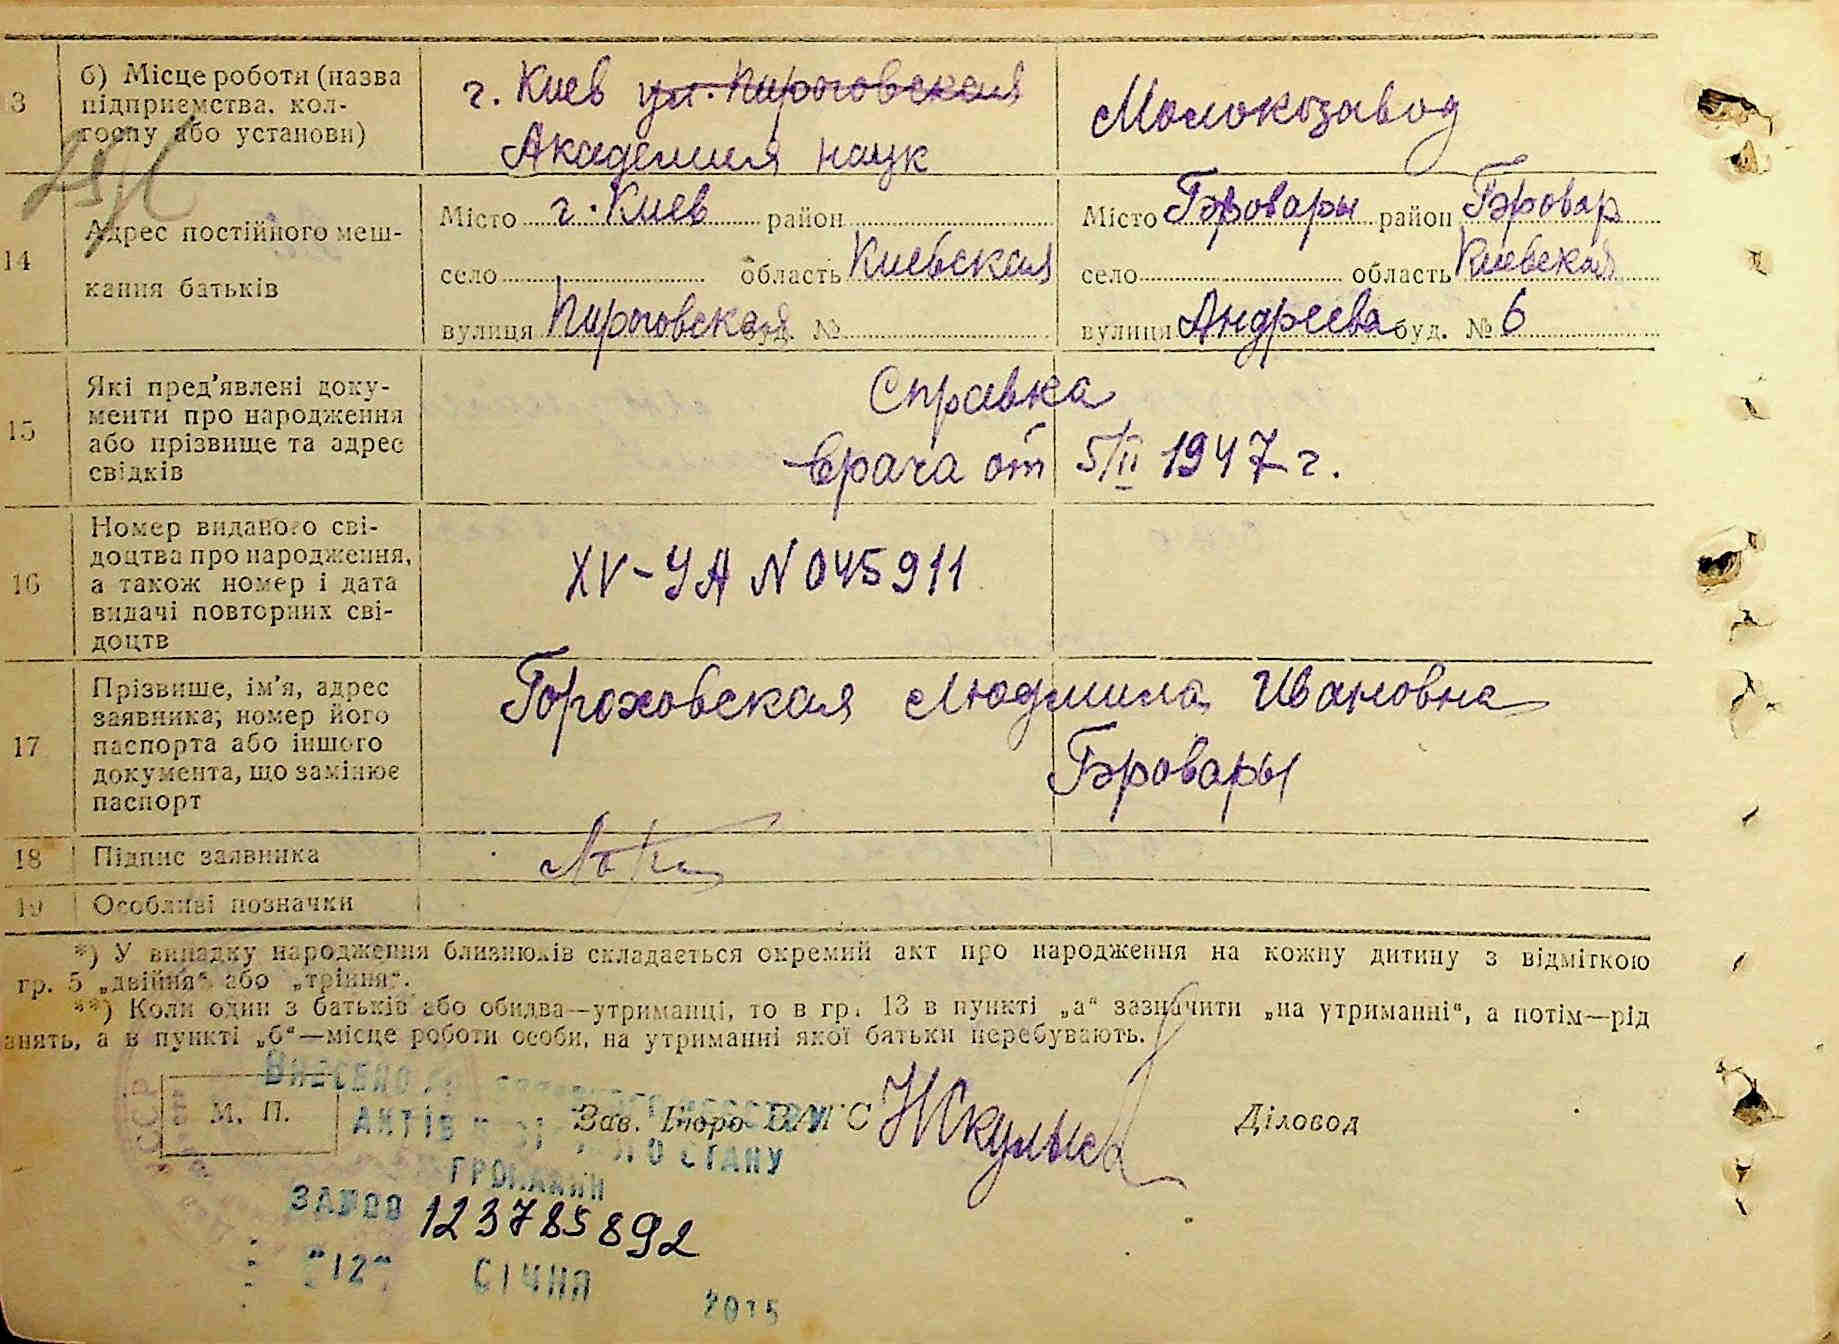 13
б) Місце роботи (назва
підприємства, кол-
госпу або установи)
г. Киев ул. Пироговская
Академия наук
Молокозавод
14
Адрес постійного меш-
кання батьків
Місто г. Киев район
село область Киевская
вулиця Пироговская буд. №
Місто Бровары район Бровар
село область Киевская
вулиця Андреева буд. № 6
15
Які пред'явлені доку-
менти про народження
або прізвище та адрес
свідків
Справка
врача от 5/II 1947 г.
16
Номер виданого сві-
доцтва про народження,
а також номер і дата
видачі повторних сві-
доцтв
XV-УА N 045911
17
Прізвише, ім'я, адрес
заявника; номер його
паспорта або іншого
документа, що замінює
паспорт
Гороховская Людмила Ивановна
Бровары
18
Підпис заявника
19
Особливі позначки
*) У випадку народження близнюків складається окремий акт про народження на кожну дитину з відміткою
гр. 5 „двійня“ або „трійня“.
**) Коли один з батьків або обидва—утриманці, то в гр. 13 в пункті „а“ зазначити „на утриманні“, а потім—рід
анять, а в пункті „б“—місце роботи особи, на утриманні якої батьки перебувають.
М. П.
Зав. Бюро ЗАГС
Діловод
ВНЕСЕНО
АКТІВ СТАНУ
ГРОМАДЯН
ЗА №00 123785892
"12" СІЧНЯ 2015